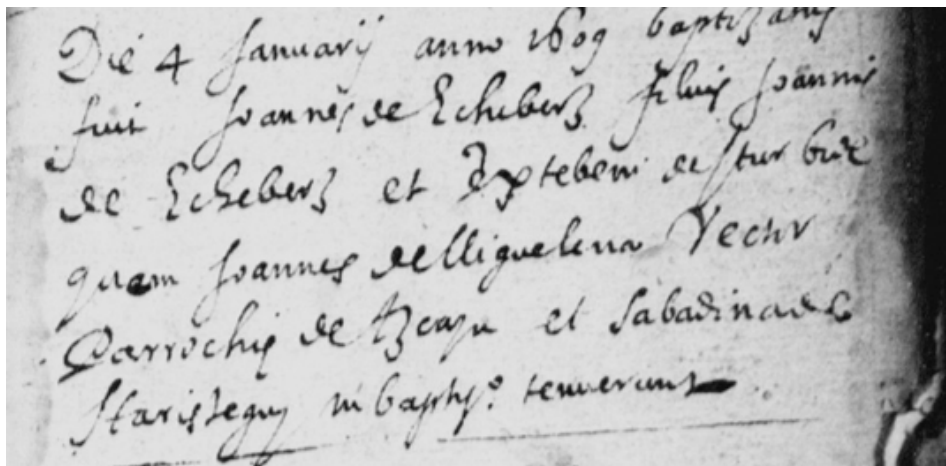 Die 4 Januarij anno 1609 baptizatus
fuit Joannes de Echeberz filius Joannis
de Echeberz et de Iturbide
quem Joannes de Miguelena Rector
Parrochie de Azcayn et Sabadina de
Haristeguy in baptis.º tenuerunt